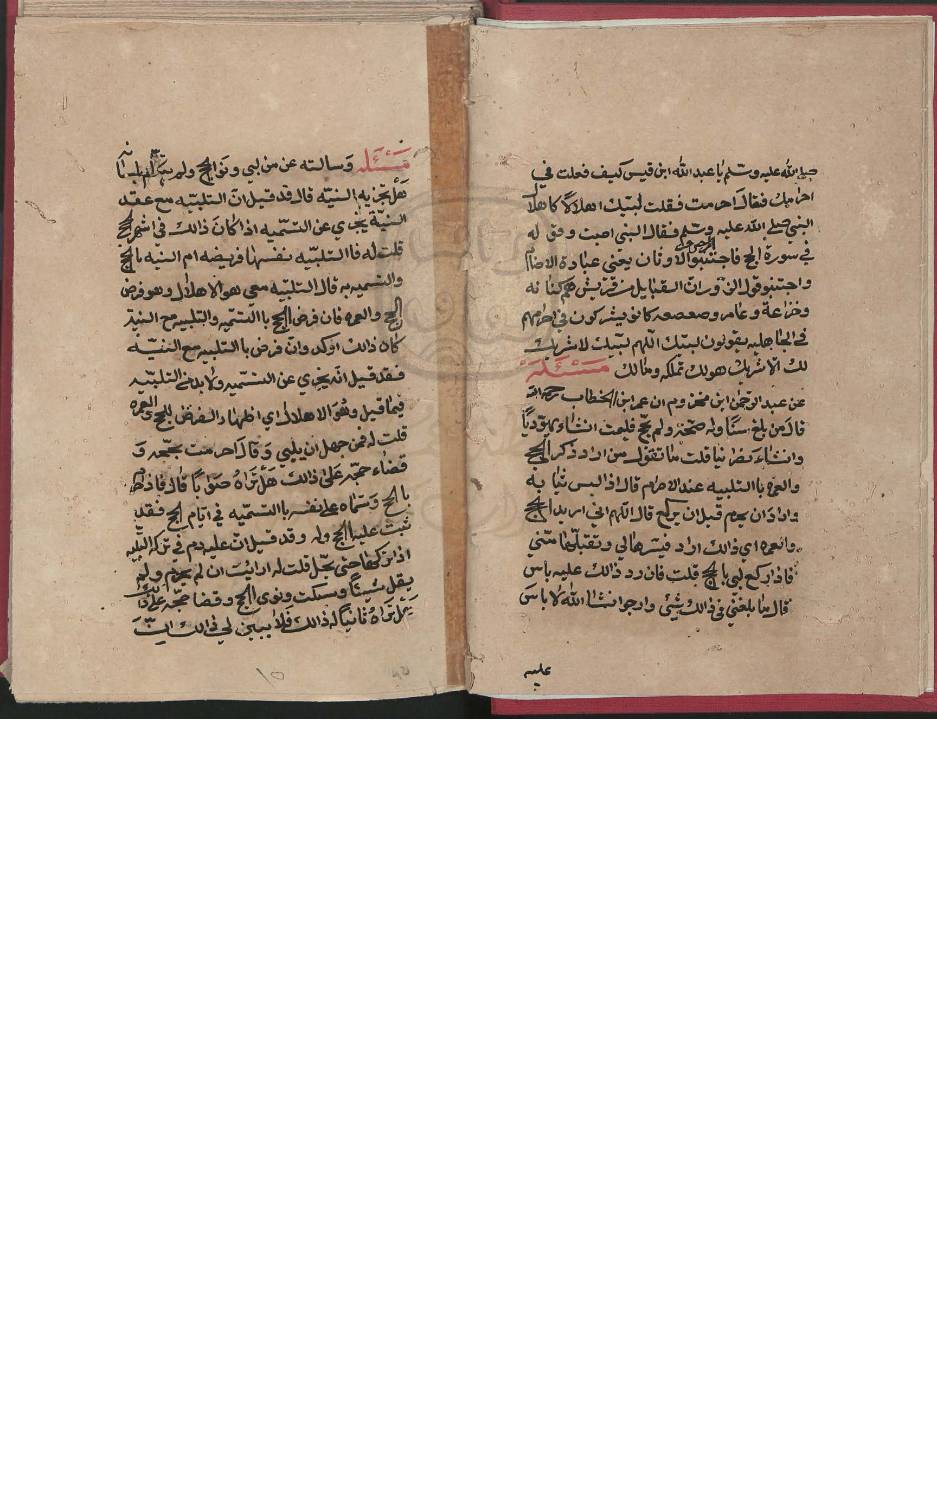 صلى الله عليه وسلم يا عبد الله ابن قيس كيف فعلت في
احرامك فقال احرمت فقلت لبيك اهلالا كاهلال
النبي صلى الله عليه وسلم فقال النبي اصبت ووفق له
في سورة الحج فاجتنبوا الرجس من الاوثان يعني عبادة الاصنام
واجتنبو قول الزور وان القبايل من قريش هم كنانه
وخزاعة وعامر وصعصعه كانو يشركون في احرامهم
في الجاهليه يقولون لبيك اللهم لبيك لا شريك
لك الا شريك هو لك تملكه وما لك مسئلة
عن عبد الرحمن ابن مخزوم ان عمر ابن الخطاب رحمه الله
قال من بلغ سنا وله صحة ولم يحج فليمت انشاء يهوديا
وانشاء نصرانيا قلت ما تقول من اراد ذكر الحج
والعمره باالتلبيه عند الاحرام قال اذا لبس ثيابه
واراد ان يحرم قبل ان يركع قال اللهم اني اريد الحج
والعمره اي ذالك اراد فيسرها لي وتقبلها مني
فاذا ركع لبى بالحج قلت فان رد ذالك عليه باس
قال ما بلغني في ذالك شئ وارجوا نشا الله لا باس
عليه
مسئله وسالته عن من لبى ونوا الحج ولم يتكلم بلسانه
هل تجزيه النيه قال قد قيل ان التلبيه مع عقد
النية يجزي عن التسميه اذا كان ذالك في اشهر الحج
قلت له فاالتلبيه نفسها فريضه ام النيه بالحج
والتسميه به قال التلبيه معي هو الاهلال وهو فرض
الحج والعمره فان فرض الحج باالتسميه والتلبيه مع النية
كان ذالك اوكد وان فرض باالتلبيه مع النيه
فقد قيل انه يجزي عن التسميه ولا بد من التلبيه
فيما قيل وهو الاهلال اي اظهار الفرض للحج والعمره
قلت له فمن جهل ان يلبي وقال احرمت بحجه و
قضاء حجه على ذالك هل تراه صوابا قال فاذا احرم
بالحج وسماه على نفسه باالتسميه في ايام الحج فقد
ثبت عليه الحج وله وقد قيل ان عليه دم في تركه التلبيه
اذا تركها حتى يحل قلت له ارائيت ان لم يحرم ولم
يقل شيئا وسكت ونوى الحج وقضا حجه على ذالك
هل تراه ثانيا له ذالك فلا يبين لي في ذالك انه